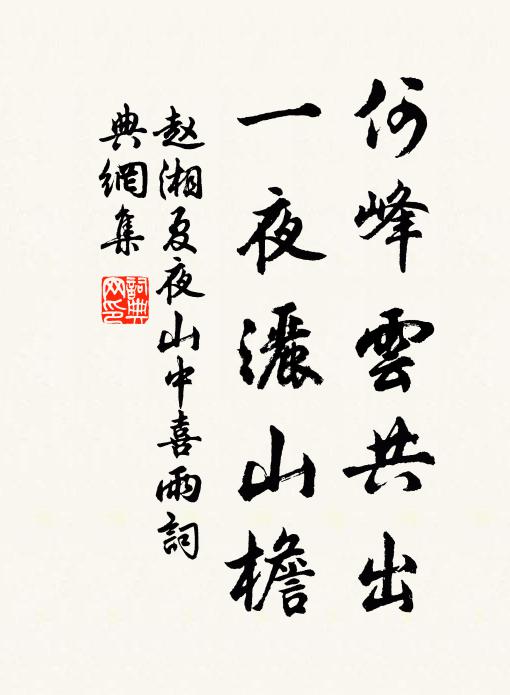 何峰雲共出
一夜灑山檐
赵湘夏夜山中喜雨詞
典網集
詞典
网印